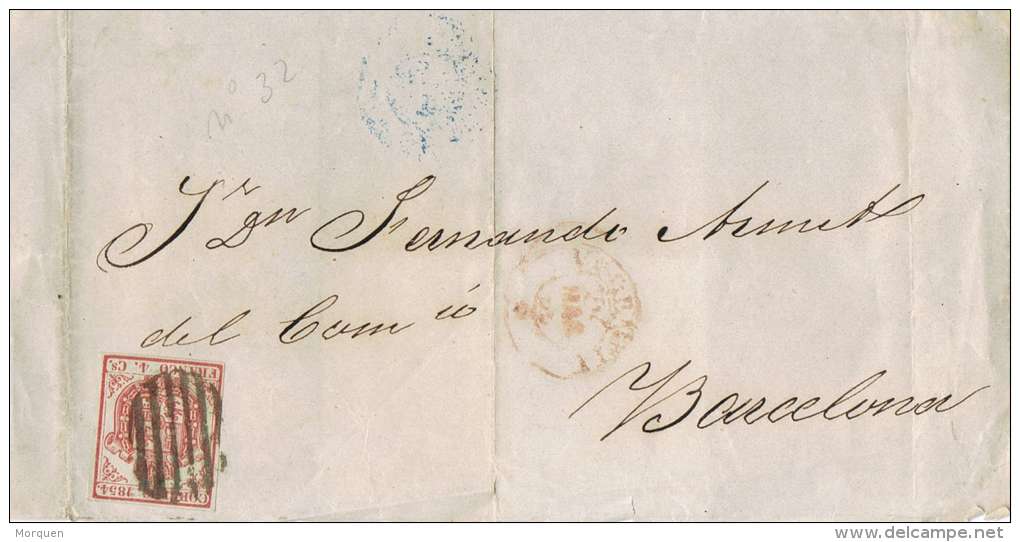 nº 32
Sr Dn Fernando Armet
del Comcio
Barcelona
FRANCO 4. Cs.
1854.
Morquen
www.delcampe.net